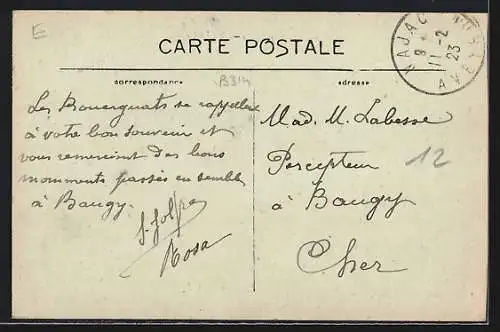 E
CARTE POSTALE
NAJAC
8
11-2
23
AVEY
correspondance
B314
adresse
Les Bouerguats se rappellent
à votre bon souvenir et
vous remercient des bons
momments passés en semble
à Baugy.
Rosa
Mad. M. Labesse
Percepteur
12
à Baugy
Cher